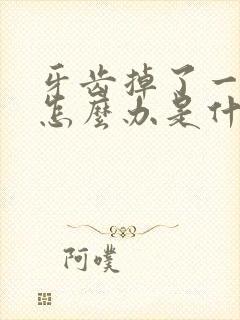 牙齿掉了一
怎麼办是什
阿噗